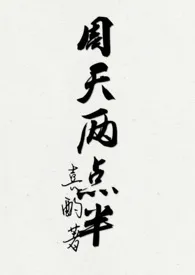 周天两点半
真酌著